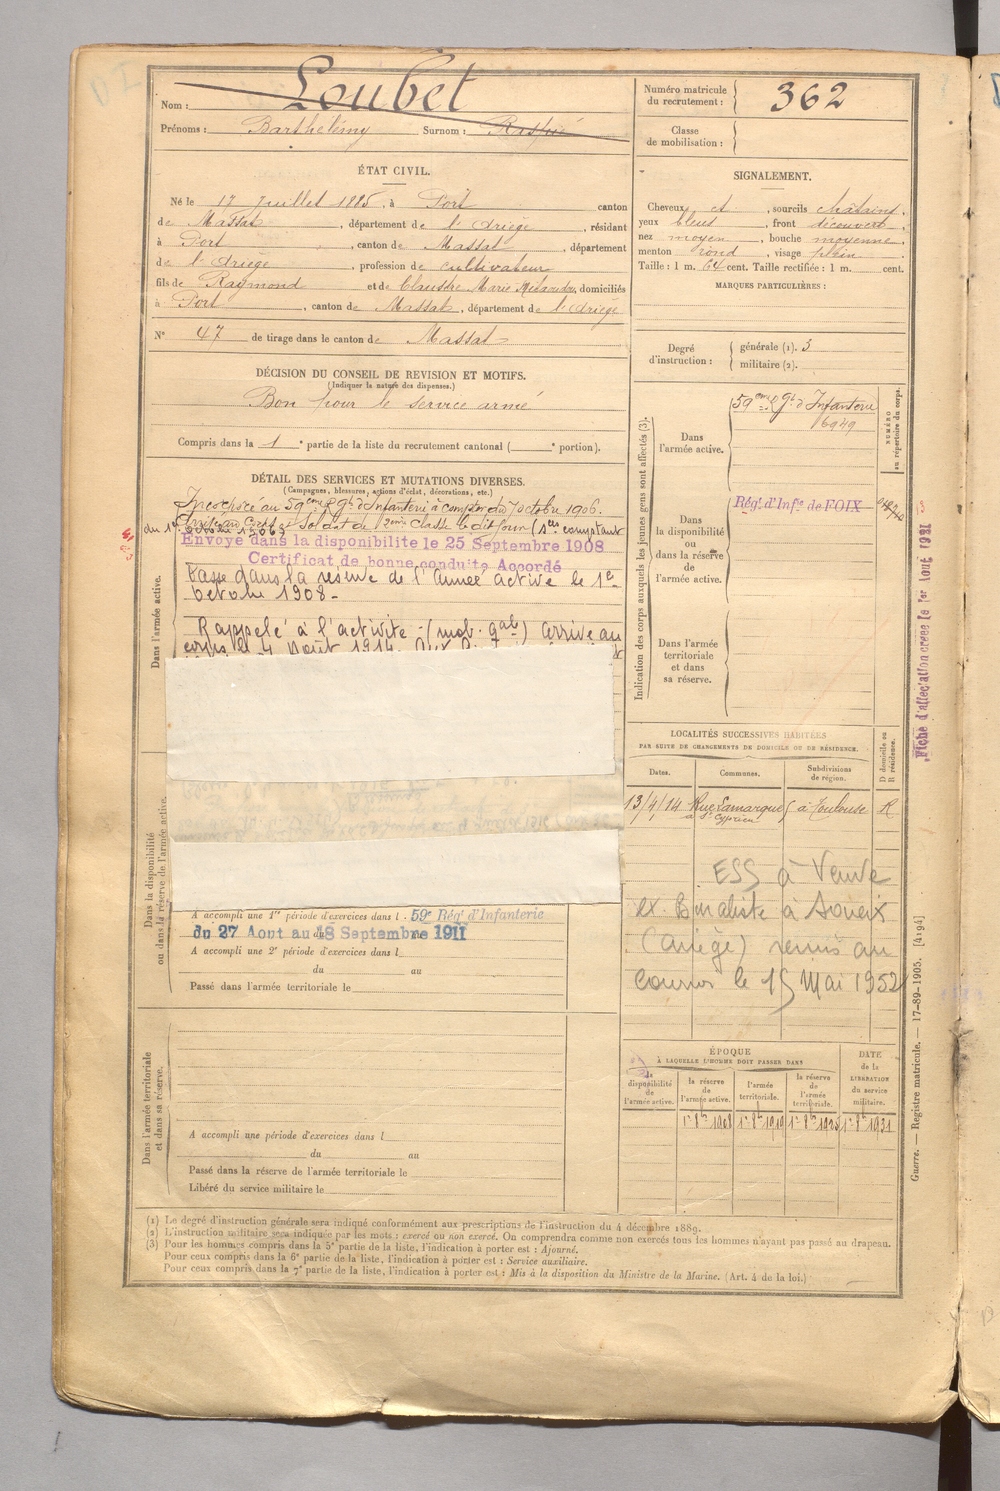 Nom : Loubet
Prénoms : Barthélémy Surnom :
ÉTAT CIVIL.
Né le 17 Juillet 1885, à Port canton
de Massat, département de l'Ariège, résidant
à Port, canton de Massat, département
de l'Ariège, profession de cultivateur
fils de Raymond et de Claustre Marie, domiciliés
à Port, canton de Massat, département de l'Ariège
N° 47 de tirage dans le canton de Massat
DÉCISION DU CONSEIL DE REVISION ET MOTIFS.
(Indiquer la nature des dispenses.)
Bon pour le service armé
Compris dans la 1e partie de la liste du recrutement cantonal (e portion).
Numéro matricule
du recrutement : 362
Classe
de mobilisation :
SIGNALEMENT.
Cheveux et, sourcils châtains,
yeux bleus, front découvert,
nez moyen, bouche moyenne,
menton rond, visage plein
Taille : 1 m. 64 cent. Taille rectifiée : 1 m. cent.
MARQUES PARTICULIÈRES :
Degré
d'instruction :
générale (1). 3
militaire (2).
DÉTAIL DES SERVICES ET MUTATIONS DIVERSES.
(Campagnes, blessures, actions d'éclat, décorations, etc.)
Incorporé au 59eme Rgt d'Infanterie à compter du 7 octobre 1906.
Arrivé au Corps et Soldat de 2eme classe le dit jour (
du 1er octobre 1906)
Envoyé dans la disponibilite le 25 Septembre 1908
Certificat de bonne conduite Accordé
Passé dans la réserve de l'Armée active le 1er
Octobre 1908 -
Rappelé à l'activité (mob. gale) arrivé au
corps le 4 Août 1914.
Dans l'armée active.
Dans la disponibilité
ou dans la réserve de l'armée active.
A accompli une 1re période d'exercices dans l 59e Régt d'Infanterie
du 27 Aout au 18 Septembre 1911
A accompli une 2e période d'exercices dans l
du au
Passé dans l'armée territoriale le
Dans l'armée territoriale
et dans sa réserve.
A accompli une période d'exercices dans l
du au
Passé dans la réserve de l'armée territoriale le
Libéré du service militaire le
Indication des corps auxquels les jeunes gens sont affectés (3).
NUMÉRO
au répertoire du corps.
Dans
l'armée active.
59eme Rgt d'Infanterie
6949
Dans
la disponibilité
ou dans la réserve
de
l'armée active.
Régt d'Infie de FOIX
Dans l'armée
territoriale
et dans
sa réserve.
Fiche d'affectation créée le 1er Aout 1921
LOCALITÉS SUCCESSIVES HABITÉES
PAR SUITE DE CHANGEMENTS DE DOMICILE OU DE RÉSIDENCE.
D domicile ou
R résidence.
Dates. Communes. Subdivisions
de région.
13/4/14 Rue Lamarque à Toulouse R
à St Cyprien
ESS à Veuve
ex. Buraliste à Soueix
(Ariège) remis au
Courrier le 15 Mai 1952
ÉPOQUE
À LAQUELLE L'HOMME DOIT PASSER DANS
DATE
de la
LIBÉRATION
du service
militaire.
la
disponibilité
de
l'armée active.
la réserve
de
l'armée active.
l'armée
territoriale.
la réserve
de
l'armée
territoriale.
1er 8bre 1908 1er 8bre 1919 1er 8bre 1925 1er 8bre 1931
Guerre. — Registre matricule. — 17-89-1905. [4194]
(1) Le degré d'instruction générale sera indiqué conformément aux prescriptions de l'instruction du 4 décembre 1889.
(2) L'instruction militaire sera indiquée par les mots : exercé ou non exercé. On comprendra comme non exercés tous les hommes n'ayant pas passé au drapeau.
(3) Pour les hommes compris dans la 5e partie de la liste, l'indication à porter est : Ajourné.
Pour ceux compris dans la 6e partie de la liste, l'indication à porter est : Service auxiliaire.
Pour ceux compris dans la 7e partie de la liste, l'indication à porter est : Mis à la disposition du Ministre de la Marine. (Art. 4 de la loi.)